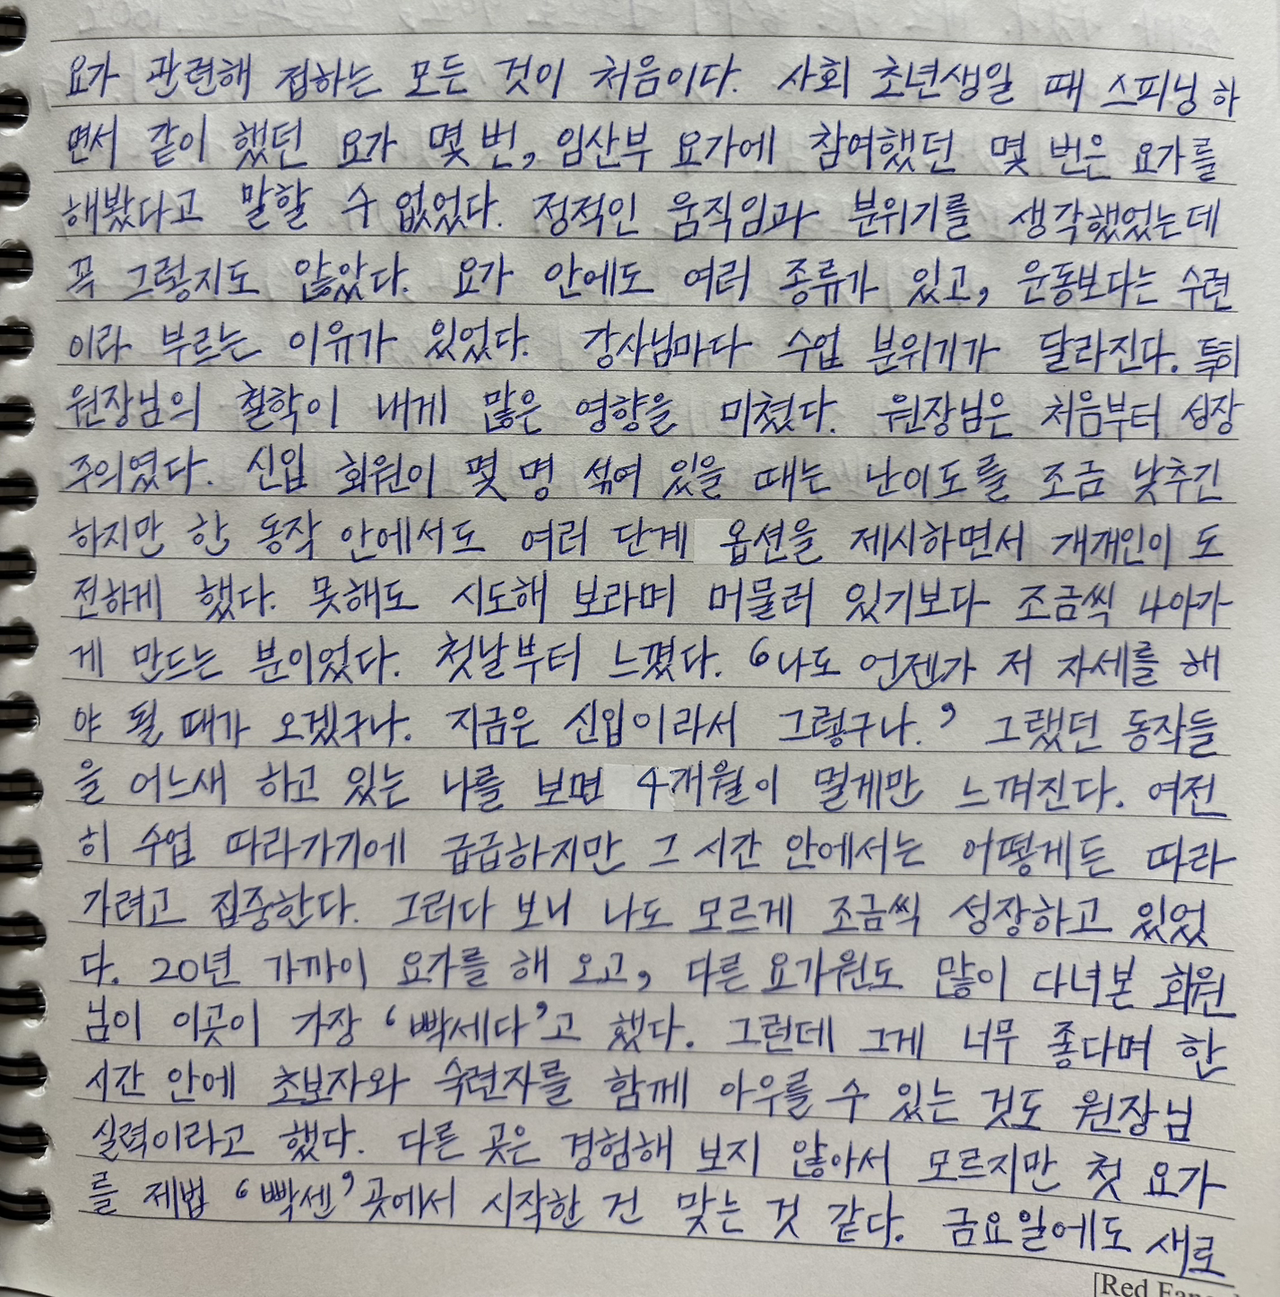 요가 관련해 접하는 모든 것이 처음이다. 사회 초년생일 때 스피닝 하
면서 같이 했던 요가 몇 번, 임산부 요가에 참여했던 몇 번은 요가를
해봤다고 말할 수 없었다. 정적인 움직임과 분위기를 생각했었는데
꼭 그렇지도 않았다. 요가 안에도 여러 종류가 있고, 운동보다는 수련
이라 부르는 이유가 있었다. 강사님마다 수업 분위기가 달라진다. 특히
원장님의 철학이 내게 많은 영향을 미쳤다. 원장님은 처음부터 성장
주의였다. 신입 회원이 몇 명 섞여 있을 때는 난이도를 조금 낮추긴
하지만 한 동작 안에서도 여러 단계 옵션을 제시하면서 개개인이 도
전하게 했다. 못해도 시도해 보라며 머물러 있기보다 조금씩 나아가
게 만드는 분이었다. 첫날부터 느꼈다. ‘나도 언젠가 저 자세를 해
야 될 때가 오겠구나. 지금은 신입이라서 그렇구나.’ 그랬던 동작들
을 어느새 하고 있는 나를 보면 4개월이 멀게만 느껴진다. 여전
히 수업 따라가기에 급급하지만 그 시간 안에서는 어떻게든 따라
가려고 집중한다. 그러다 보니 나도 모르게 조금씩 성장하고 있었
다. 20년 가까이 요가를 해 오고, 다른 요가원도 많이 다녀본 회원
님이 이곳이 가장 ‘빡세다’고 했다. 그런데 그게 너무 좋다며 한
시간 안에 초보자와 숙련자를 함께 아우를 수 있는 것도 원장님
실력이라고 했다. 다른 곳은 경험해 보지 않아서 모르지만 첫 요가
를 제법 ‘빡센’ 곳에서 시작한 건 맞는 것 같다. 금요일에도 새로